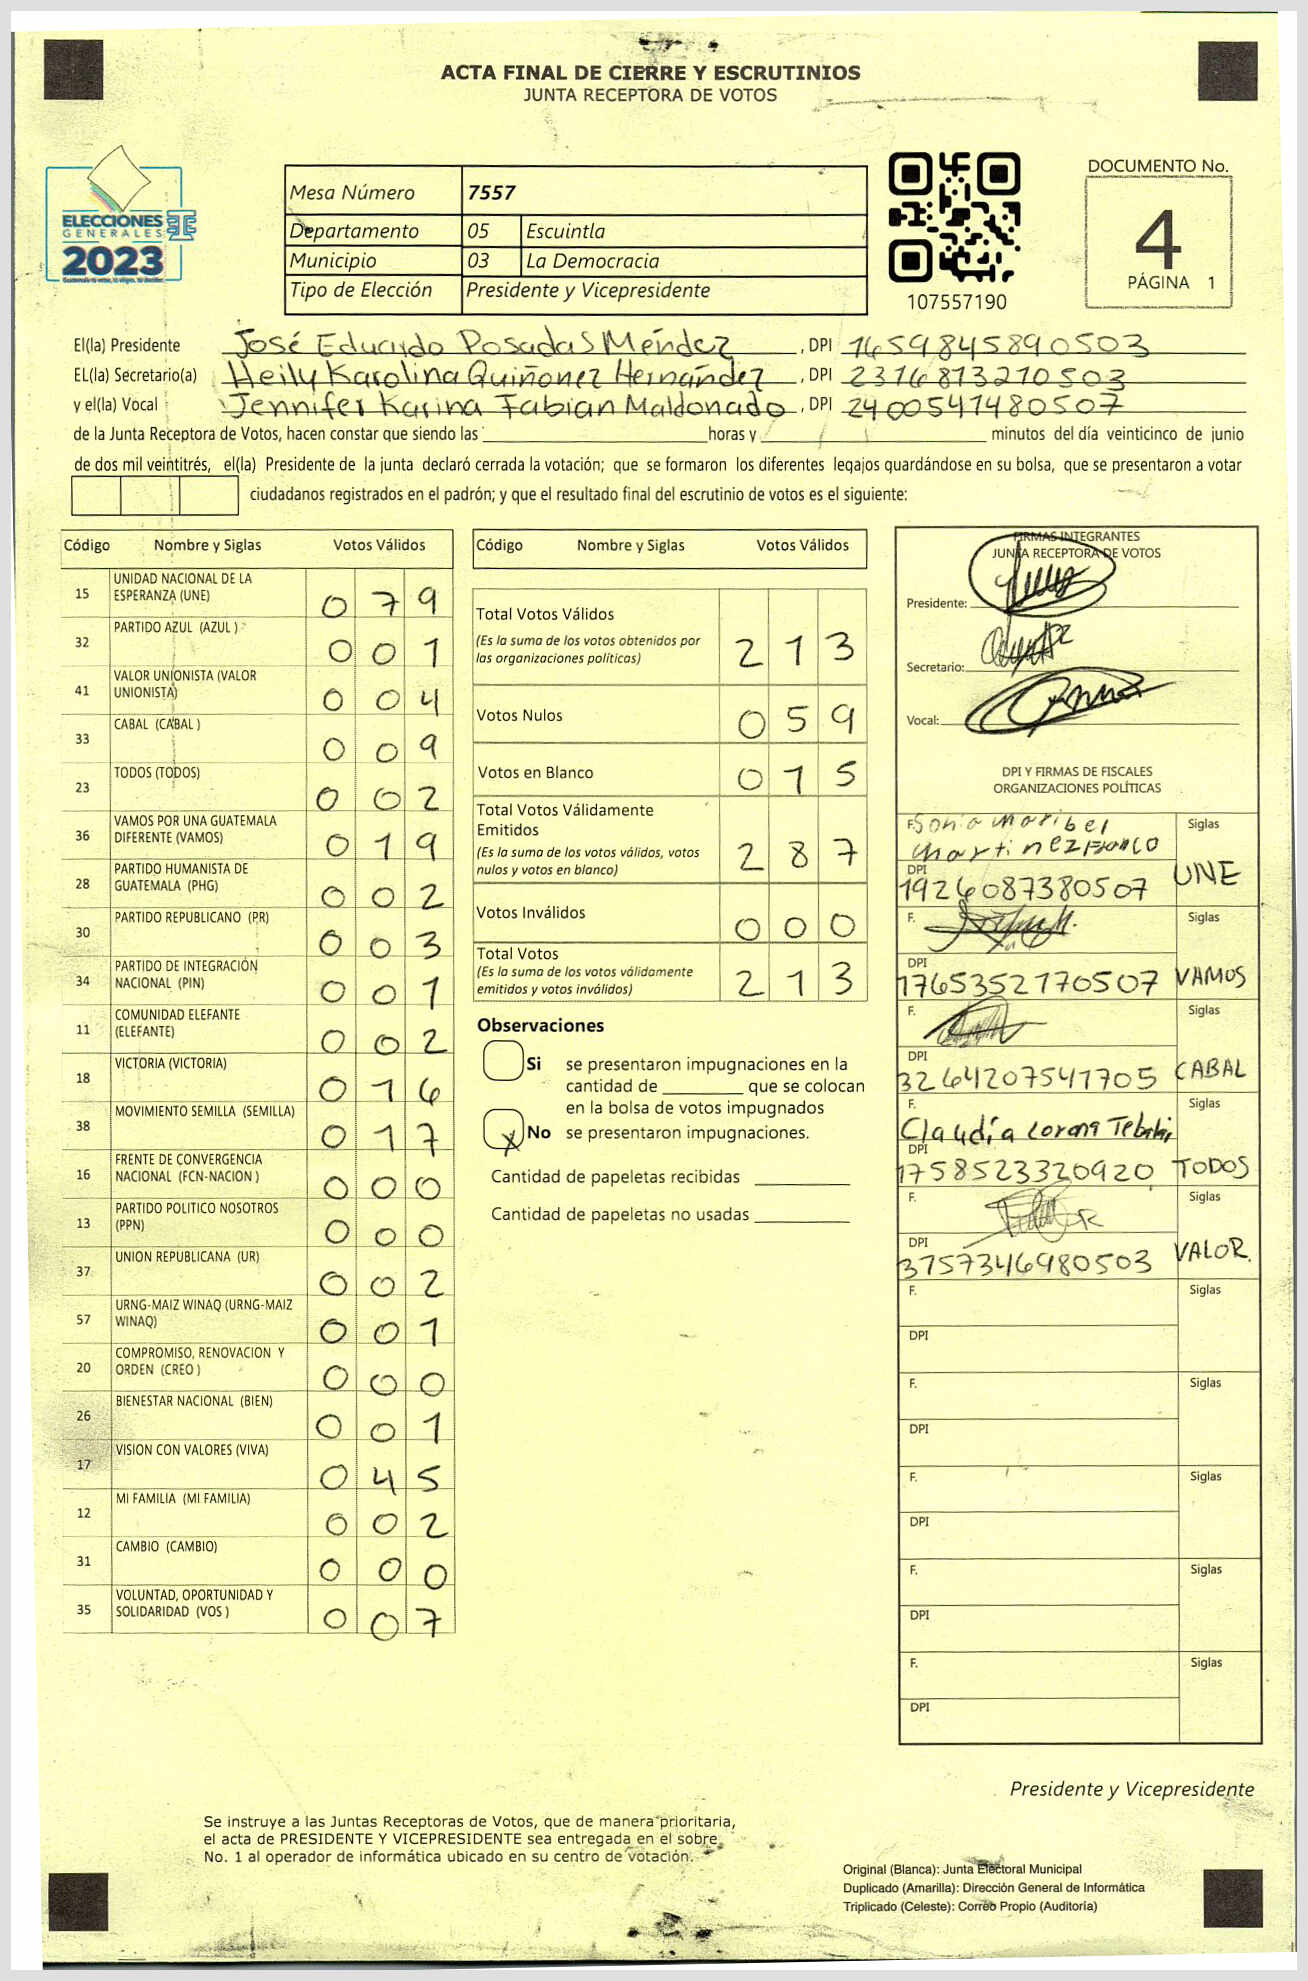 ACTA FINAL DE CIERRE Y ESCRUTINIOS
JUNTA RECEPTORA DE VOTOS
ELECCIONES
GENERALES
2023
Mesa Número 7557
Departamento 05 Escuintla
Municipio 03 La Democracia
Tipo de Elección Presidente y Vicepresidente
107557190
DOCUMENTO No.
4
PÁGINA 1
El(la) Presidente José Eduardo Posadas Méndez, DPI 1659845890503
EL(la) Secretario(a) Heily Karolina Quiñonez Hernández, DPI 2316813210503
y el(la) Vocal Jennifer Karina Fabian Maldonado, DPI 2400541480507
de la Junta Receptora de Votos, hacen constar que siendo las ____ horas y ____ minutos del día veinticinco de junio
de dos mil veintitrés, el(la) Presidente de la junta declaró cerrada la votación; que se formaron los diferentes legajos guardándose en su bolsa, que se presentaron a votar
ciudadanos registrados en el padrón; y que el resultado final del escrutinio de votos es el siguiente:
Código Nombre y Siglas Votos Válidos
15 UNIDAD NACIONAL DE LA ESPERANZA (UNE) 0 7 9
32 PARTIDO AZUL (AZUL ) 0 0 1
41 VALOR UNIONISTA (VALOR UNIONISTA) 0 0 4
33 CABAL (CABAL ) 0 0 9
23 TODOS (TODOS) 0 0 2
36 VAMOS POR UNA GUATEMALA DIFERENTE (VAMOS) 0 1 9
28 PARTIDO HUMANISTA DE GUATEMALA (PHG) 0 0 2
30 PARTIDO REPUBLICANO (PR) 0 0 3
34 PARTIDO DE INTEGRACIÓN NACIONAL (PIN) 0 0 1
11 COMUNIDAD ELEFANTE (ELEFANTE) 0 0 2
18 VICTORIA (VICTORIA) 0 1 6
38 MOVIMIENTO SEMILLA (SEMILLA) 0 1 7
16 FRENTE DE CONVERGENCIA NACIONAL (FCN-NACION ) 0 0 0
13 PARTIDO POLITICO NOSOTROS (PPN) 0 0 0
37 UNION REPUBLICANA (UR) 0 0 2
57 URNG-MAIZ WINAQ (URNG-MAIZ WINAQ) 0 0 1
20 COMPROMISO, RENOVACION Y ORDEN (CREO ) 0 0 0
26 BIENESTAR NACIONAL (BIEN) 0 0 1
17 VISION CON VALORES (VIVA) 0 4 5
12 MI FAMILIA (MI FAMILIA) 0 0 2
31 CAMBIO (CAMBIO) 0 0 0
35 VOLUNTAD, OPORTUNIDAD Y SOLIDARIDAD (VOS ) 0 0 7
Código Nombre y Siglas Votos Válidos
Total Votos Válidos 2 1 3
(Es la suma de los votos obtenidos por
las organizaciones políticas)
Votos Nulos 0 5 9
Votos en Blanco 0 1 5
Total Votos Válidamente
Emitidos 2 8 7
(Es la suma de los votos válidos, votos
nulos y votos en blanco)
Votos Inválidos 0 0 0
Total Votos 2 1 3
(Es la suma de los votos válidamente
emitidos y votos inválidos)
Observaciones
Si se presentaron impugnaciones en la
cantidad de ____ que se colocan
en la bolsa de votos impugnados
X No se presentaron impugnaciones.
Cantidad de papeletas recibidas ____
Cantidad de papeletas no usadas ____
FIRMAS INTEGRANTES
JUNTA RECEPTORA DE VOTOS
Presidente:
Secretario:
Vocal:
DPI Y FIRMAS DE FISCALES
ORGANIZACIONES POLÍTICAS
F. Sonia Maribel Siglas
Martinez Franco
DPI 1926087380507 UNE
F. Siglas
DPI 1765352170507 VAMOS
F. Siglas
DPI 3264207541705 CABAL
F. Claudia Lorena Siglas
DPI 1758523320920 TODOS
F. Siglas
DPI 3757346980503 VALOR.
F. Siglas
DPI
F. Siglas
DPI
F. Siglas
DPI
F. Siglas
DPI
F. Siglas
DPI
Presidente y Vicepresidente
Se instruye a las Juntas Receptoras de Votos, que de manera prioritaria,
el acta de PRESIDENTE Y VICEPRESIDENTE sea entregada en el sobre
No. 1 al operador de informática ubicado en su centro de votación.
Original (Blanca): Junta Electoral Municipal
Duplicado (Amarilla): Dirección General de Informática
Triplicado (Celeste): Correo Propio (Auditoría)